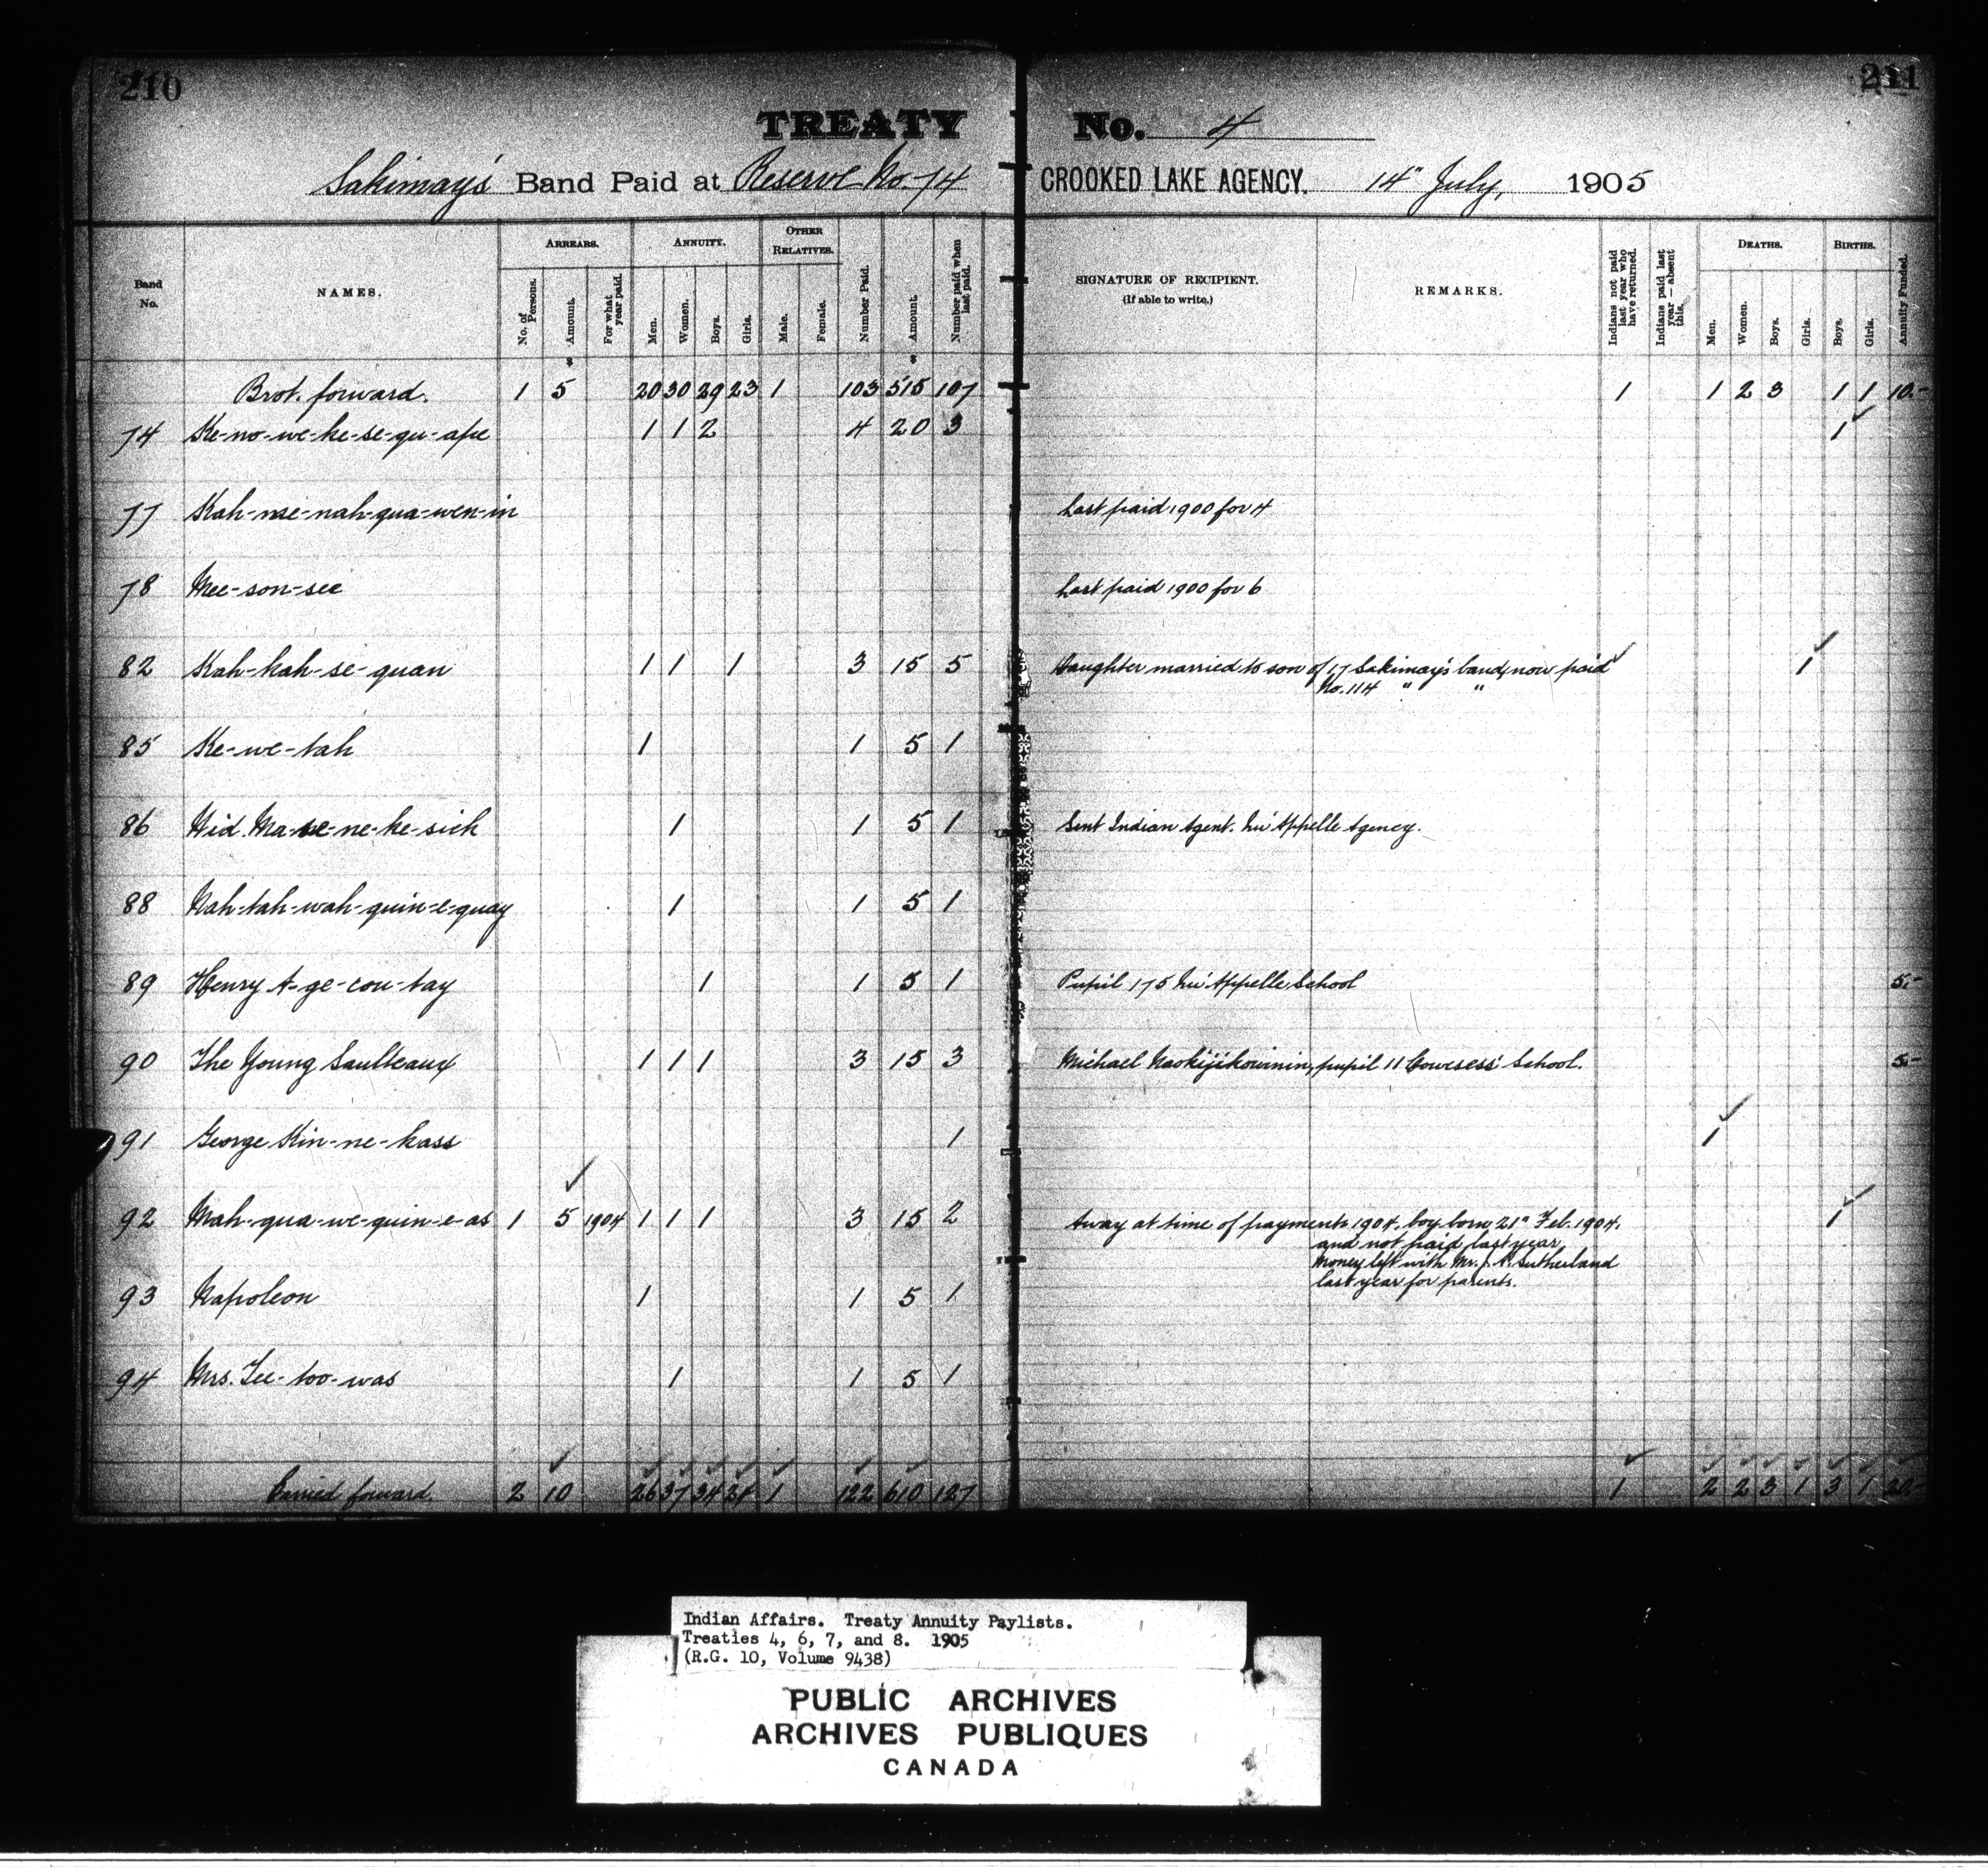 210 211
TREATY No. 4
Sakimay's Band Paid at Reserve No. 74 CROOKED LAKE AGENCY. 14" July, 1905
Band No. NAMES. ARREARS. No. of Persons. Amount. For what year paid. ANNUITY. Men. Women. Boys. Girls. OTHER RELATIVES. Male. Female. Number Paid. Amount. Number paid when last paid. SIGNATURE OF RECIPIENT. (If able to write.) REMARKS. Indians not paid last year who have returned. Indians paid last year—absent this. DEATHS. Men. Women. Boys. Girls. BIRTHS. Boys. Girls. Annuity Funded.
Brot. forward. 1 5 20 30 29 23 1 103 515 107 1 1 2 3 1 1 10.-
74 Ke-no-we-ke-se-qu-ape 1 1 2 4 20 3 1
77 Kah-me-nah-qua-wen-in Last paid 1900 for 4
78 Mee-son-see Last paid 1900 for 6
82 Kah-kah-se-quan 1 1 1 3 15 5 Daughter married to son of 17 Sakimay's band, now paid 1
No. 114 " "
85 Ke-we-tah 1 1 5 1
86 Wid. Ma-se-ne-ke-sick 1 1 5 1 Sent Indian Agent. Qu'Appelle Agency.
88 Nah-tah-wah-quin-e-quay 1 1 5 1
89 Henry A-ge-cou-tay 1 1 5 1 Pupil 175 Qu'Appelle School 5.-
90 The Young Saulteaux 1 1 1 3 15 3 Michael Naokijikowinin, pupil 11 Cowesess' School. 5-
91 George Kin-ne-kass 1 1
92 Mah-qua-we-quin-e-as 1 5 1904 1 1 1 3 15 2 Away at time of payments 1904, boy born 21" Feb. 1904, 1
and not paid last year.
Money left with Mr. J. A. Sutherland
last year for parents.
93 Napoleon 1 1 5 1
94 Mrs. Tee-too-was 1 1 5 1
Carried forward. 2 10 26 37 34 24 1 122 610 127 1 2 2 3 1 3 1 20.-
Indian Affairs. Treaty Annuity Paylists.
Treaties 4, 6, 7, and 8. 1905
(R.G. 10, Volume 9438)
PUBLIC ARCHIVES
ARCHIVES PUBLIQUES
CANADA